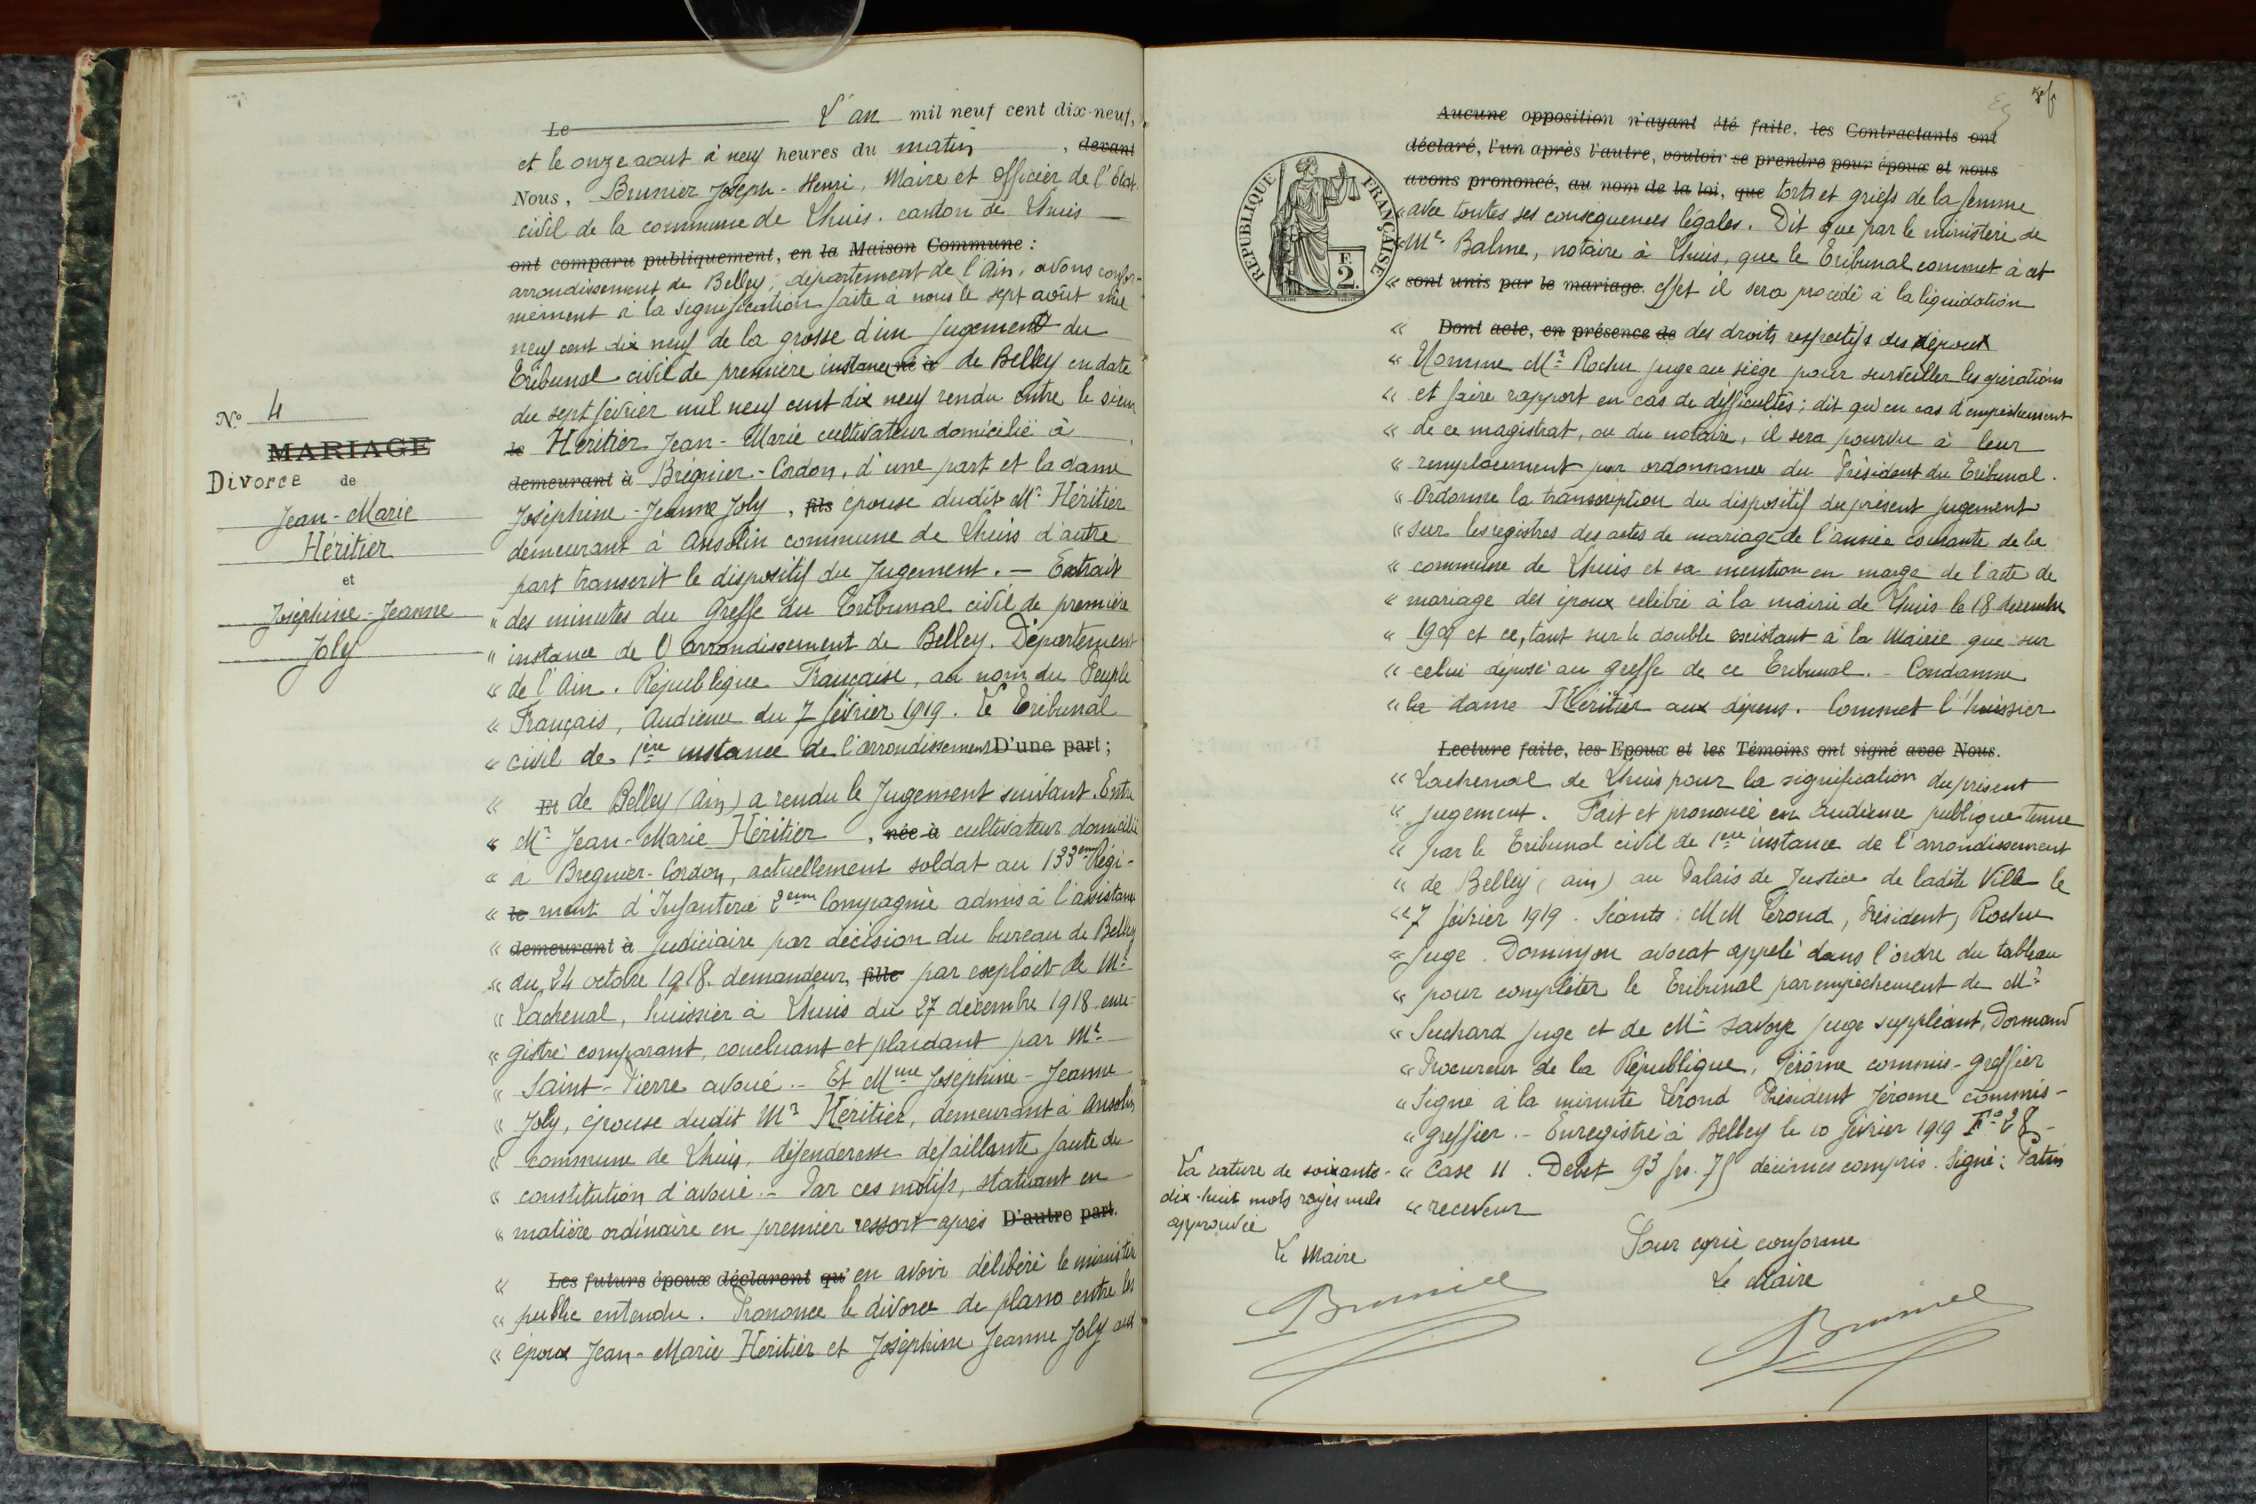 Le L'an mil neuf cent dix-neuf,
et le onze aout à neuf heures du matin, devant
Nous, Brunier Joseph-Henri, Maire et Officier de l'Etat
civil de la commune de Lhuis. canton de Lhuis
ont comparu publiquement, en la Maison Commune :
arrondissement de Belley, département de l'Ain, avons confor-
mément à la signification faite à nous le sept août mil
neuf cent dix neuf de la grosse d'un jugement du
Tribunal civil de première instance né à de Belley en date
du sept février mil neuf cent dix neuf rendu entre le sieur
le Héritier Jean-Marie cultivateur domicilié à
demeurant à Brégnier-Cordon, d'une part et la dame
Joséphine-Jeanne Joly, fils épouse dudit Mr Héritier
demeurant à Ansolin commune de Lhuis d'autre
part transcrit le dispositif du Jugement. — Extrait
" des minutes du Greffe du Tribunal civil de première
" instance de l'arrondissement de Belley. Département
" de l'Ain. République Française, au nom du Peuple
" Français, Audience du 7 février 1919. Le Tribunal
" civil de 1ère instance de l'arrondissement D'une part ;
" Et de Belley (Ain) a rendu le Jugement suivant. Entre
" Mr Jean-Marie Héritier, née à cultivateur domicilié
" à Bregnier-Cordon, actuellement soldat au 133eme Régi-
" le ment d'Infanterie 2eme Compagnie admis à l'assistance
" demeurant à judiciaire par décision du bureau de Belley
" du 24 octobre 1918. demandeur, fille par exploit de Mr
" Lachenal, huissier à Lhuis du 27 décembre 1918 enre-
" gistré comparant, concluant et plaidant par Mr
" Saint-Pierre avoué. — Et Mme Joséphine-Jeanne
" Joly, épouse dudit Mr Héritier, demeurant à Ansolin
" commune de Lhuis, défenderesse défaillante faute de
" constitution d'avoué. — Par ces motifs, statuant en
" matière ordinaire en premier ressort après D'autre part.
" Les futurs époux déclarent qu'en avoir délibéré le ministère
" public entendu. Prononce le divorce de plano entre les
" époux Jean-Marie Héritier et Joséphine Jeanne Joly aux
No 4
MARIAGE
Divorce de
Jean-Marie
Héritier
et
Joséphine-Jeanne
Joly
Aucune opposition n'ayant été faite, les Contractants ont
déclaré, l'un après l'autre, vouloir se prendre pour époux et nous
avons prononcé, au nom de la loi, que torts et griefs de la femme
" avec toutes ses conséquences légales. Dit que par le ministère de
" Me Balme, notaire à Lhuis, que le Tribunal commet à cet
" sont unis par le mariage. effet il sera procédé à la liquidation
" Dont acte, en présence de des droits respectifs des époux
" Nomme Mr Rochu juge au siège pour surveiller les opérations
" et faire rapport en cas de difficultés ; dit qu'en cas d'empêchement
" de ce magistrat, ou du notaire, il sera pourvu à leur
" remplacement par ordonnance du Président du Tribunal.
" Ordonne la transcription du dispositif du présent jugement
" sur les registres des actes de mariage de l'année courante de la
" commune de Lhuis et sa mention en marge de l'acte de
" mariage des époux célébré à la mairie de Lhuis le 18 decembre
" et ce, tant sur le double existant à la Mairie que sur
" celui déposé au greffe de ce Tribunal. — Condamne
" la dame Héritier aux dépens. Commet l'huissier
Lecture faite, les Epoux et les Témoins ont signé avec Nous.
" Lachenal de Lhuis pour la signification du présent
" jugement. Fait et prononcé en audience publique tenue
" par le Tribunal civil de 1ere instance de l'arrondissement
" de Belley (ain) au Palais de Justice de ladite Ville le
" 7 février 1919. Séants : MM Térond, Président, Rochu
" Juge. Dominjon avocat appelé dans l'ordre du tableau
" pour compléter le Tribunal par empêchement de Mr
" Suchard juge et de Mr Savoye juge suppléant, Dormand
" Procureur de la République, Jérôme commis-greffier
" Signé à la minute Térond Président Jérome commis-
" greffier. — Enregistré à Belley le 10 février 1919 Fo 28 -
" Case 11. Debet 93 frs. 75 décimes compris. Signé : Patin
" receveur
Pour copie conforme
Le Maire
Brunier
La rature de soixante-
dix-huit mots rayés nuls
approuvée
Le Maire
Brunier
REPUBLIQUE FRANÇAISE
F.
2.